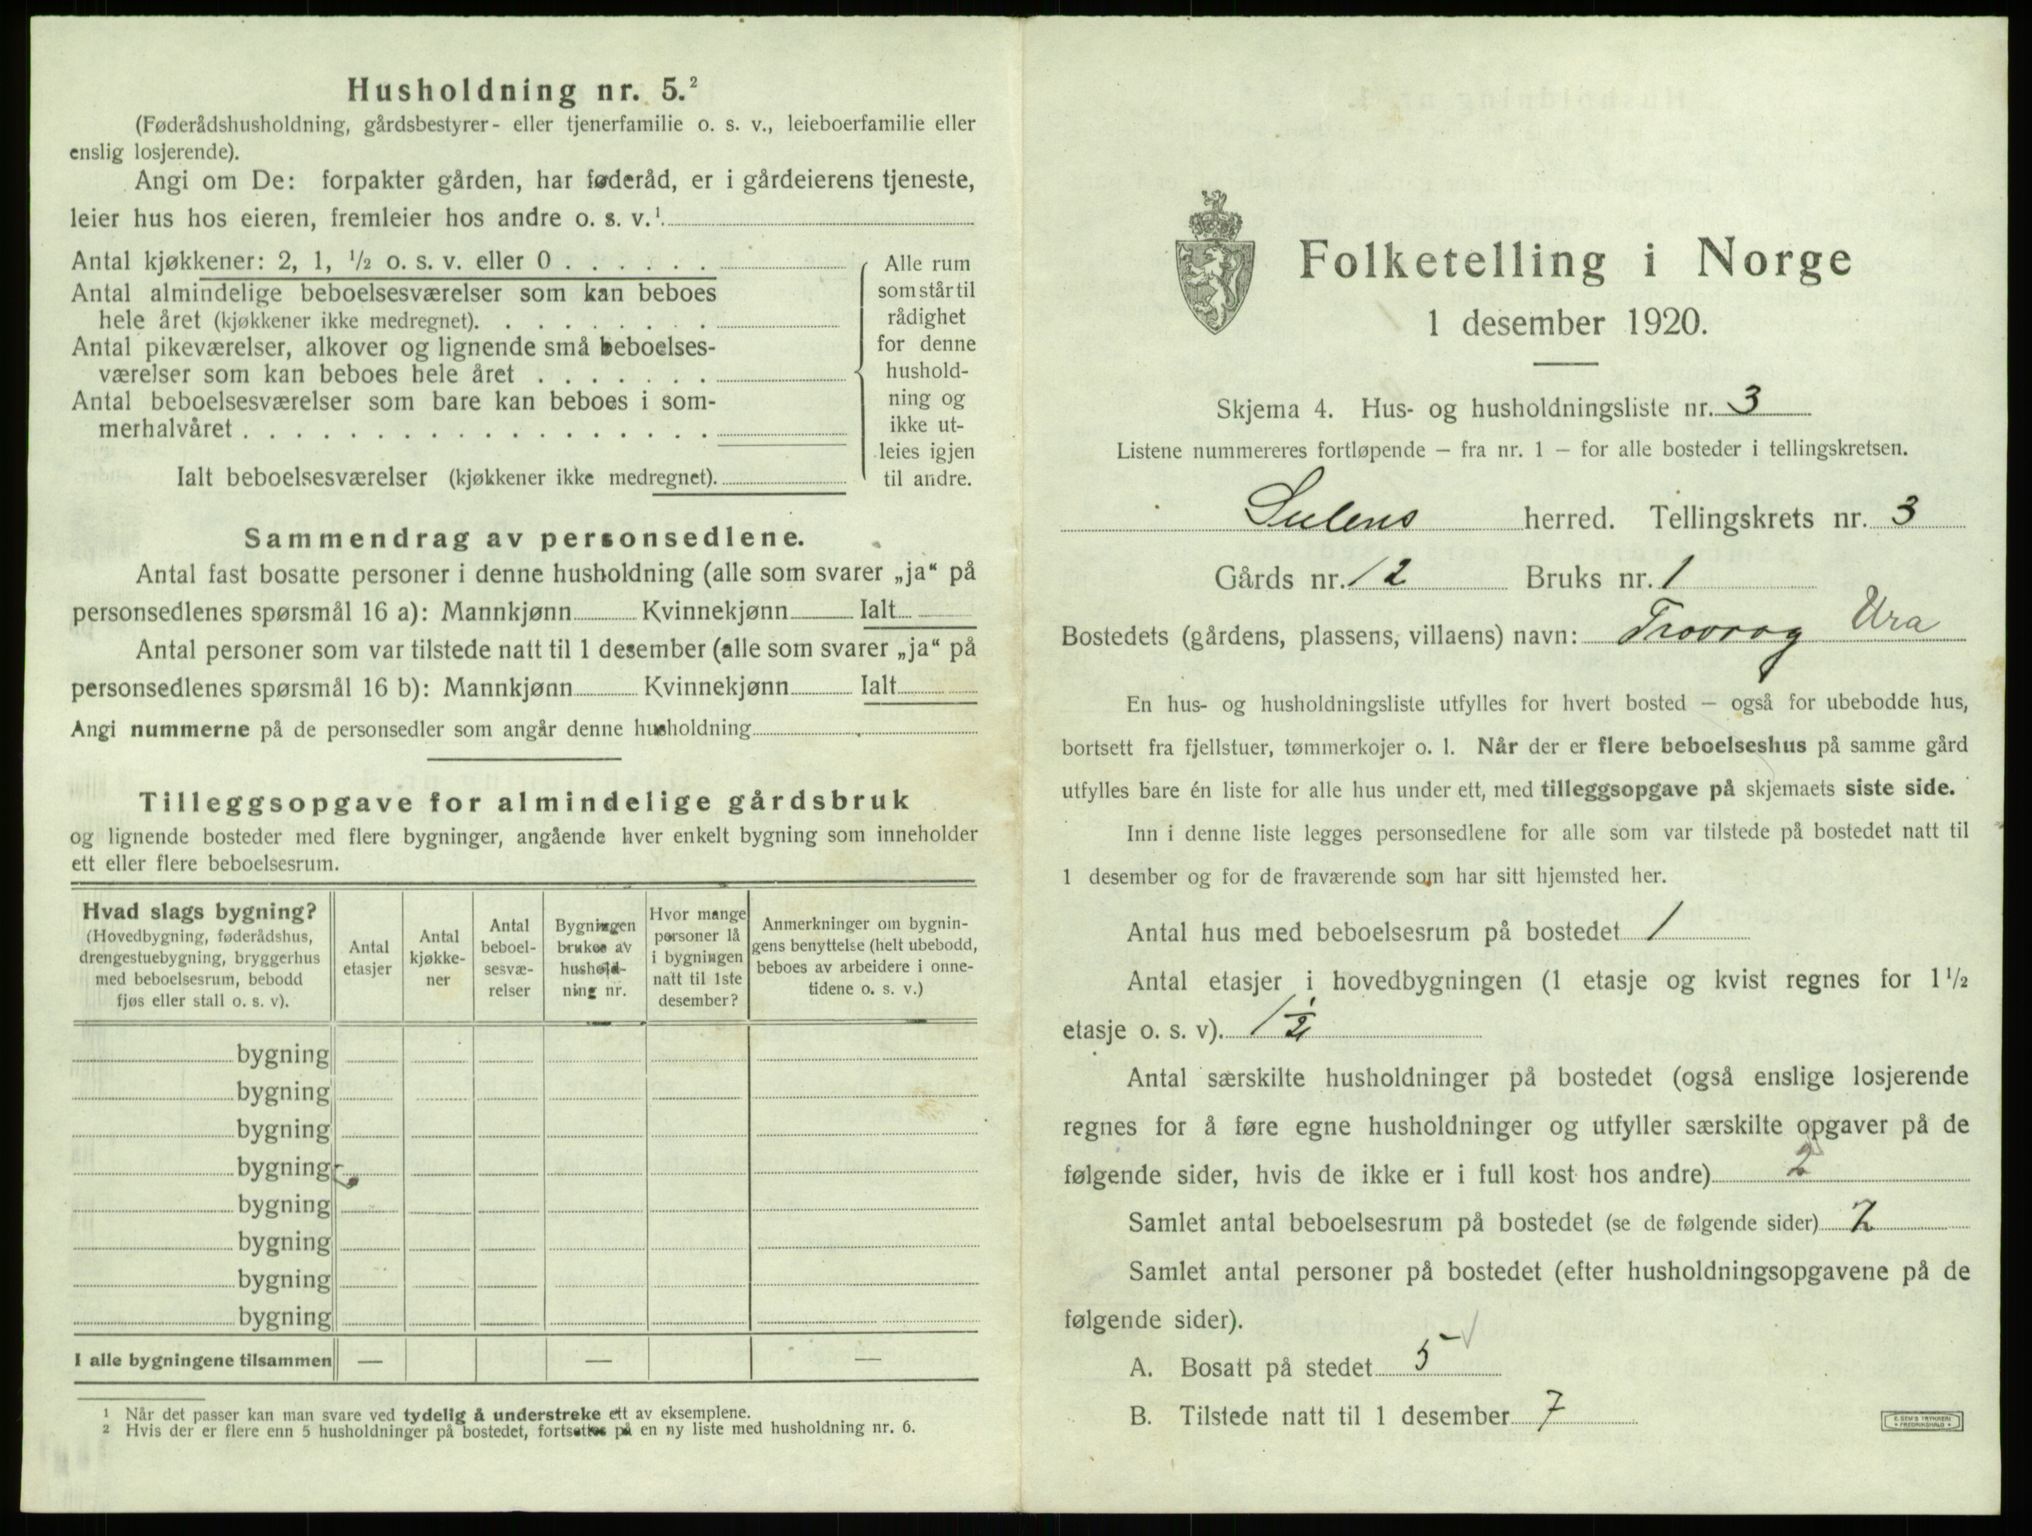 Husholdning nr. 5.²
(Føderådshusholdning, gårdsbestyrer- eller tjenerfamilie o. s. v., leieboerfamilie eller
enslig losjerende).
Angi om De: forpakter gården, har føderåd, er i gårdeierens tjeneste,
leier hus hos eieren, fremleier hos andre o. s. v.¹
Antal kjøkkener: 2, 1, ½ o. s. v. eller 0 . . . . . .
Antal almindelige beboelsesværelser som kan beboes
hele året (kjøkkener ikke medregnet). . . . . . . . .
Antal pikeværelser, alkover og lignende små beboelses-
værelser som kan beboes hele året . . . . . . .
Antal beboelsesværelser som bare kan beboes i som-
merhalvåret . . . . . . . . . . . . . . . . . .
Ialt beboelsesværelser (kjøkkener ikke medregnet).
Alle rum
som står til
rådighet
for denne
hushold-
ning og
ikke ut-
leies igjen
til andre.
Sammendrag av personsedlene.
Antal fast bosatte personer i denne husholdning (alle som svarer „ja“ på
personsedlenes spørsmål 16 a): Mannkjønn Kvinnekjønn Ialt
Antal personer som var tilstede natt til 1 desember (alle som svarer „ja“ på
personsedlenes spørsmål 16 b): Mannkjønn Kvinnekjønn Ialt
Angi nummerne på de personsedler som angår denne husholdning
Tilleggsopgave for almindelige gårdsbruk
og lignende bosteder med flere bygninger, angående hver enkelt bygning som inneholder
ett eller flere beboelsesrum.
Hvad slags bygning?
(Hovedbygning, føderådshus,
drengestuebygning, bryggerhus
med beboelsesrum, bebodd
fjøs eller stall o. s. v).
Antal
etasjer
Antal
kjøkke-
ner
Antal
beboel-
sesvæ-
relser
Bygningen
brukes av
hushold-
ning nr.
Hvor mange
personer lå
i bygningen
natt til 1ste
desember?
Anmerkninger om bygnin-
gens benyttelse (helt ubebodd,
beboes av arbeidere i onne-
tidene o. s. v.)
bygning
bygning
bygning
bygning
bygning
bygning
bygning
bygning
I alle bygningene tilsammen — — —
¹ Når det passer kan man svare ved tydelig å understreke ett av eksemplene.
² Hvis der er flere enn 5 husholdninger på bostedet, fortsettes på en ny liste med husholdning nr. 6.
Folketelling i Norge
1 desember 1920.
Skjema 4. Hus- og husholdningsliste nr. 3
Listene nummereres fortløpende – fra nr. 1 – for alle bosteder i tellingskretsen.
Sulens herred. Tellingskrets nr. 3
Gårds nr. 12 Bruks nr. 1
Bostedets (gårdens, plassens, villaens) navn: Trovrog Ura
En hus- og husholdningsliste utfylles for hvert bosted – også for ubebodde hus,
bortsett fra fjellstuer, tømmerkojer o. l. Når der er flere beboelseshus på samme gård
utfylles bare én liste for alle hus under ett, med tilleggsopgave på skjemaets siste side.
Inn i denne liste legges personsedlene for alle som var tilstede på bostedet natt til
1 desember og for de fraværende som har sitt hjemsted her.
Antal hus med beboelsesrum på bostedet 1
Antal etasjer i hovedbygningen (1 etasje og kvist regnes for 1½
etasje o. s. v). 1½
Antal særskilte husholdninger på bostedet (også enslige losjerende
regnes for å føre egne husholdninger og utfyller særskilte opgaver på de
følgende sider, hvis de ikke er i full kost hos andre) 2
Samlet antal beboelsesrum på bostedet (se de følgende sider) 7
Samlet antal personer på bostedet (efter husholdningsopgavene på de
følgende sider).
A. Bosatt på stedet 5
B. Tilstede natt til 1 desember 7
E. SEM'S TRYKKERI
FREDRIKSHALD